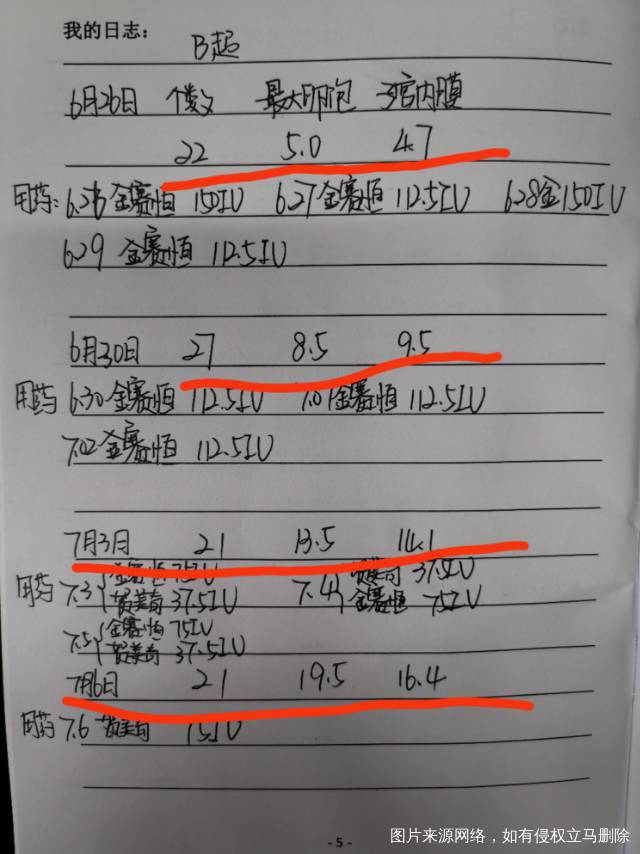 我的日志：
B起
6月26日 个数 最大卵泡 子宫内膜
22 5.0 4.7
用药：6.26金赛恒 150IU 6.27金赛恒 112.5IU 6.28金150IU
6.29 金赛恒 112.5IU
6月30日 27 8.5 9.5
用药 6.30金赛恒 112.5IU 7.01金赛恒 112.5IU
7.02金赛恒 112.5IU
7月3日 21 13.5 14.1
用药 7.3 金赛恒 75IU 贺美奇 37.5IU 7.4 贺美奇 37.5IU 金赛恒 75IU
7.5 金赛恒 75IU 贺美奇 37.5IU
7月6日 21 19.5 16.4
用药 7.6 贺美奇 75IU
- 5 -
图片来源网络，如有侵权立马删除